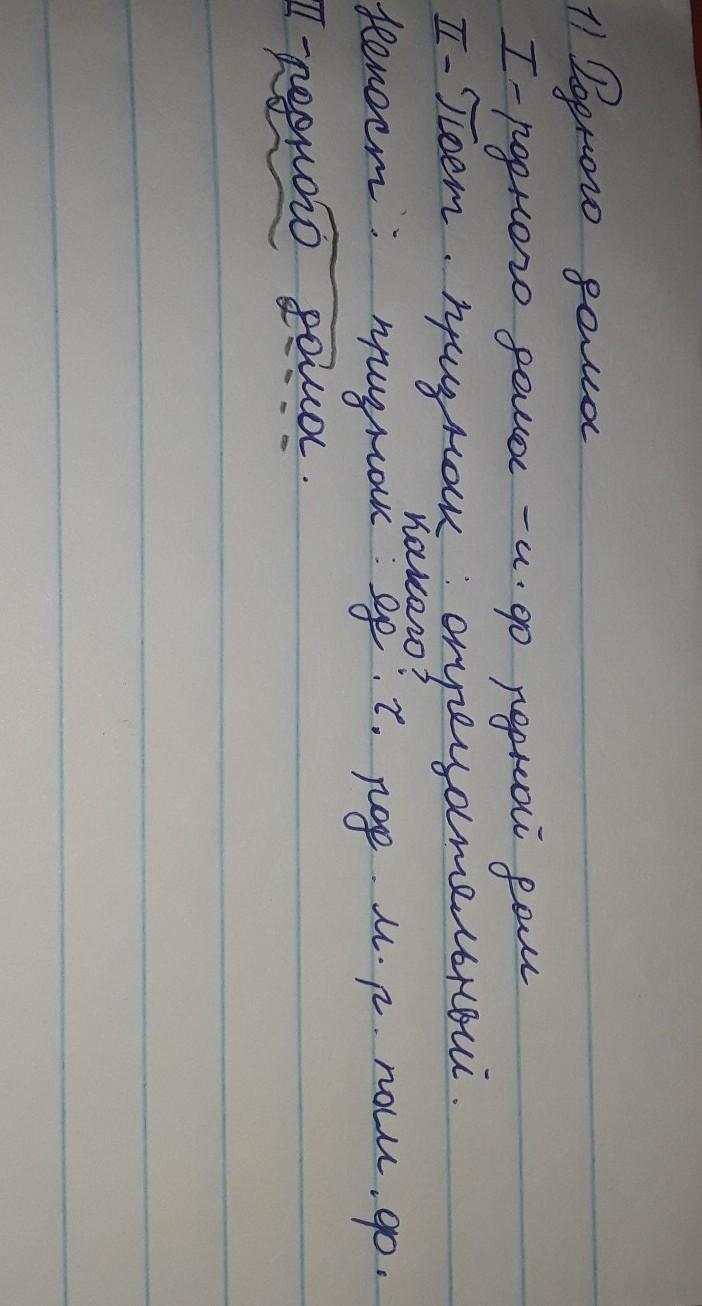 1) Родного дома
I - родного дома - н. ф родной дом
II - Пост. признак : отрецательный.
какого?
Непост : признак : ед. ч. род. м. р. полн. ф.
III - родного дома.